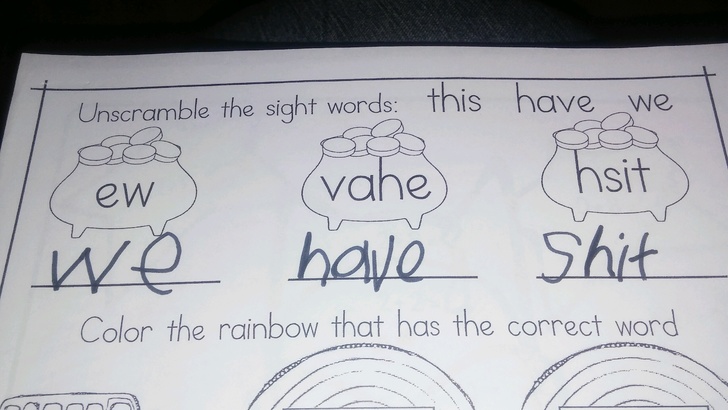 Unscramble the sight words: this have we
ew vahe hsit
we have Shit
Color the rainbow that has the correct word